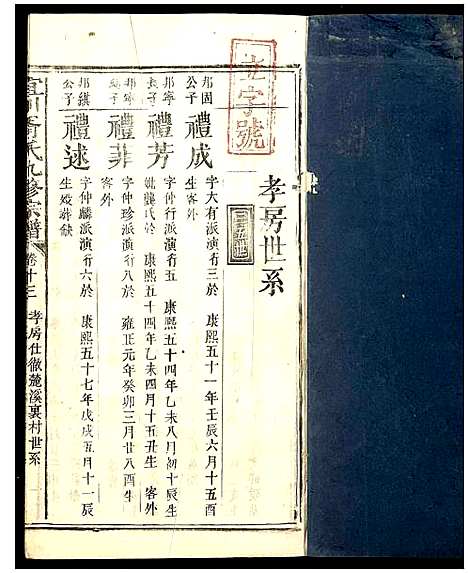 立字號
孝房世系
三十五世
邦固公子
禮成
字大有派演行三於 康熙五十一年壬辰六月十五酉生客外
邦寧公子
禮芳
字仲行派演行五 康熙五十四年乙未八月初十辰生
妣龔氏於 康熙五十四年乙未四月十五丑生 客外
邦寧公子
禮菲
字仲珍派演行八於 雍正元年癸卯三月廿八酉生
客外
邦績公子
禮述
字仲麟派演行六於 康熙五十七年戊戌五月十一辰
生歿葬缺
宜川 氏九修宗譜
卷十三
孝房仕徹麓溪裏村世系